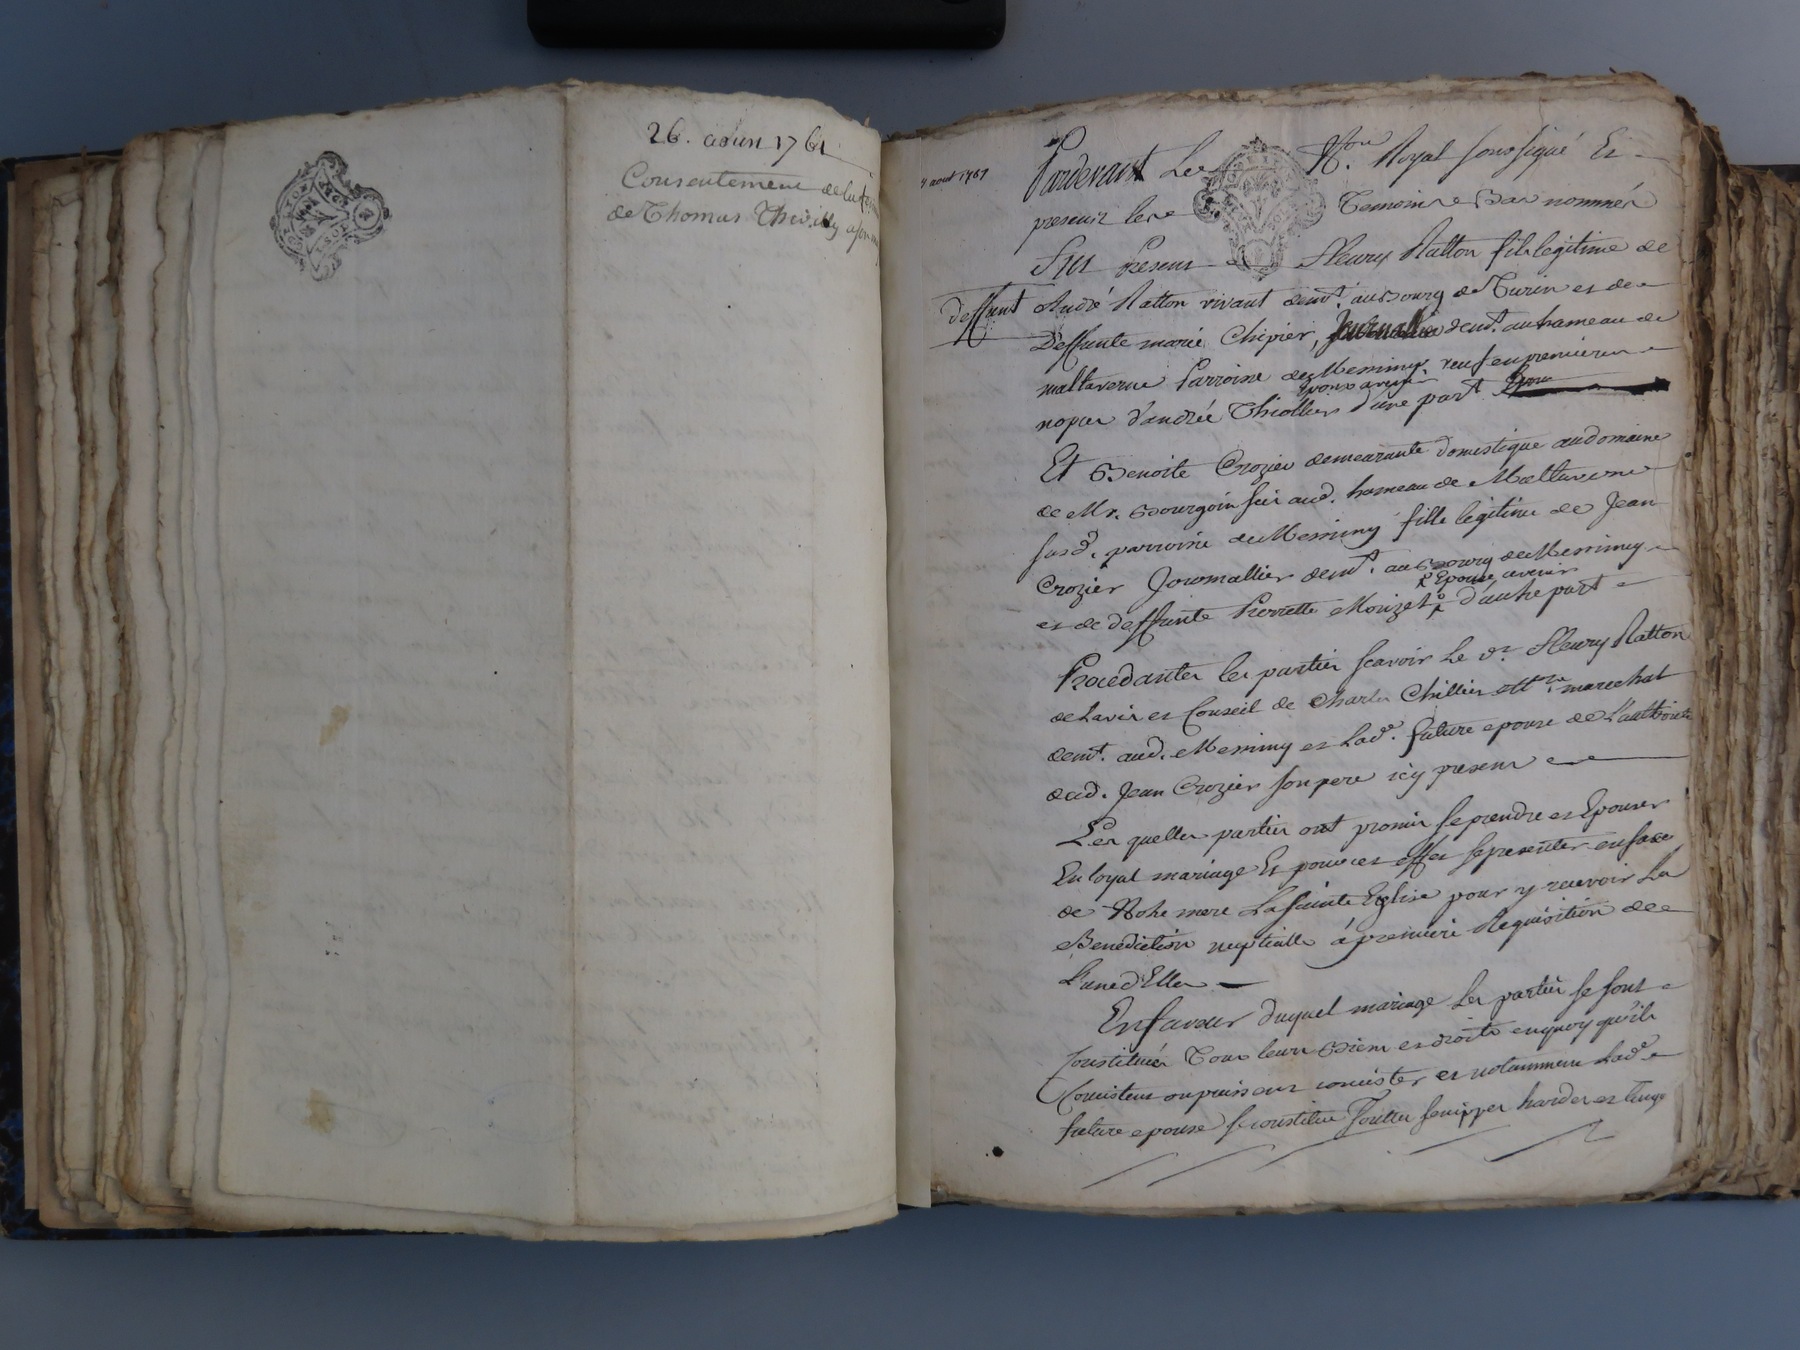 26. aoun 1761
Consentement de la
de Thomas Thivilly a son
4 aout 1761
Pardevant Le Nre. Royal soussigné Et
present les Temoins Bas nommés
Fut Present Fleury Ratton fils legitime de
deffunt André Ratton vivant demt. au Bourg de Turin et de
deffunte marie Chipier, Journallier demt. au hameau de
maltaverne Parroisse de Messimy, veuf en premieres
Epoux avenir
nopces d'andrée Thiollier d'une part
Et Benoite Crozier demeurante domestique au domaine
de Mr. Bourgoin sis aud. hameau de Maltaverne
susd. parroisse de Messimy fille legitime de Jean
Crozier Journallier demt. au Bourg de Messimy
Epouse avenir
et de deffunte Pierrette Morizet d'autre part
Procedantes les parties scavoir Le Sr. Fleury Ratton
de Lavis et Conseil de Charles Chillier Mtre. marechal
demt. aud. Messimy et Lade. future epouse de L'authorité
dud. Jean Crozier son pere icy present
Les quelles parties ont promis se prendre et Epouser
En loyal mariage Et pour cet effet se presenter en face
de Notre mere La sainte Eglise pour y recevoir La
Benediction nuptialle à premiere Requisition de
L'une d'Elles
En faveur duquel mariage Les parties se sont
Constituées Tous leurs Biens et droits en quoy qu'ils
Consistent ou puissent consister et notamment Lade.
future epouse se constitue Toutes ses nippes hardes et linge